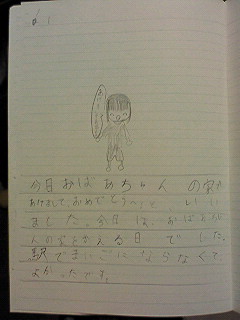 今日おばあちゃんの家
あけましておめでとうと、いい
ました。今日は、おばあちゃ
んの家をかえる日でした。
駅でまいごにならなくて
よかったです。